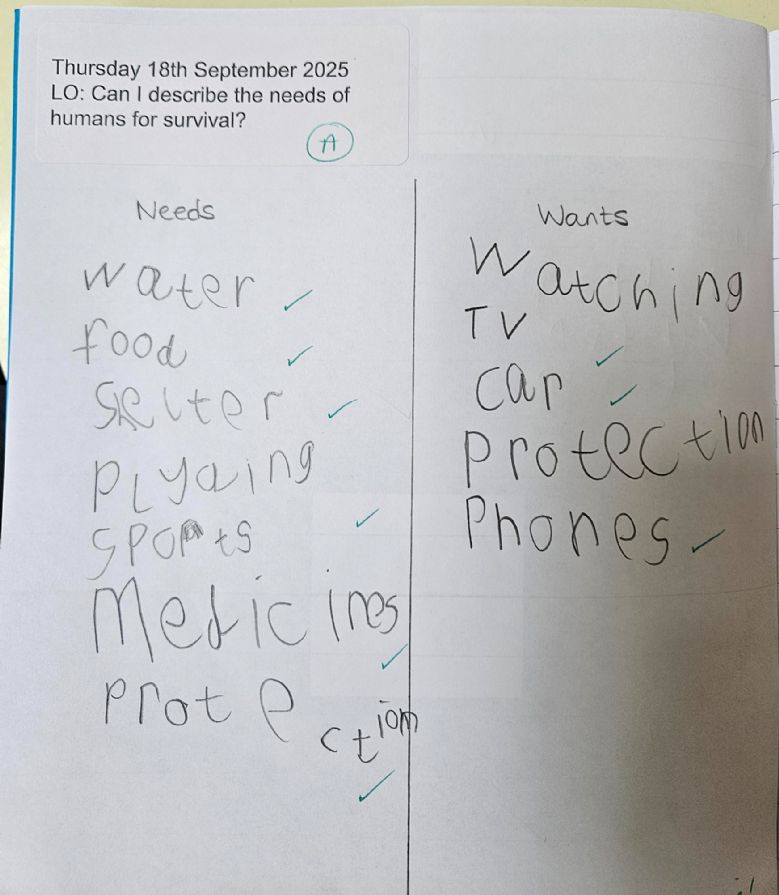 Thursday 18th September 2025
LO: Can I describe the needs of
humans for survival?
A
Needs
water
food
Selter
Plyaing
sports
Medicines
Protection
Wants
Watching
TV
car
Protection
Phones